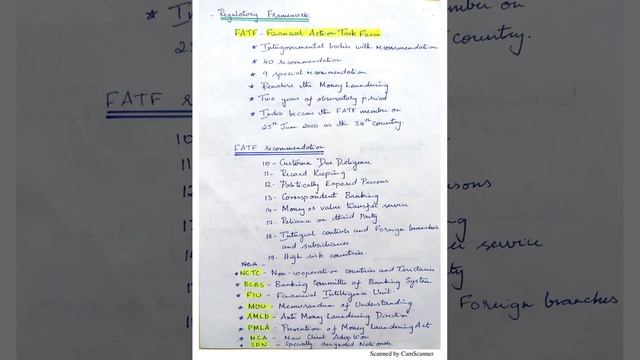 Regulatory Framework
FATF - Financial Action Task Force
* Intergovernmental bodies with recommendation
* 40 recommendation
* 9 special recommendation
* Penalise the Money Laundering
* Two years of observatory period
* India became the FATF member on
25th June 2010 as the 34th country.
FATF recommendation
10 - Customer Due Diligence
11 - Record Keeping
12 - Politically Exposed Persons
13 - Correspondent Banking
14 - Money or value transfer service
17 - Reliance on third Party
18 - Integral controls and Foreign branches
and subsidiaries
19 - High risk countries.
* NCTC - Non-cooperative countries and Territories
* BCBS - Banking Committee of Banking System
* FIU - Financial Intelligence Unit
* MOU - Memorandum of Understanding
* AMLD - Anti Money Laundering Direction
* PMLA - Prevention of Money Laundering Act
* NCA - New Client Adoption
* SDN - Specially designated Nationals
Scanned by CamScanner